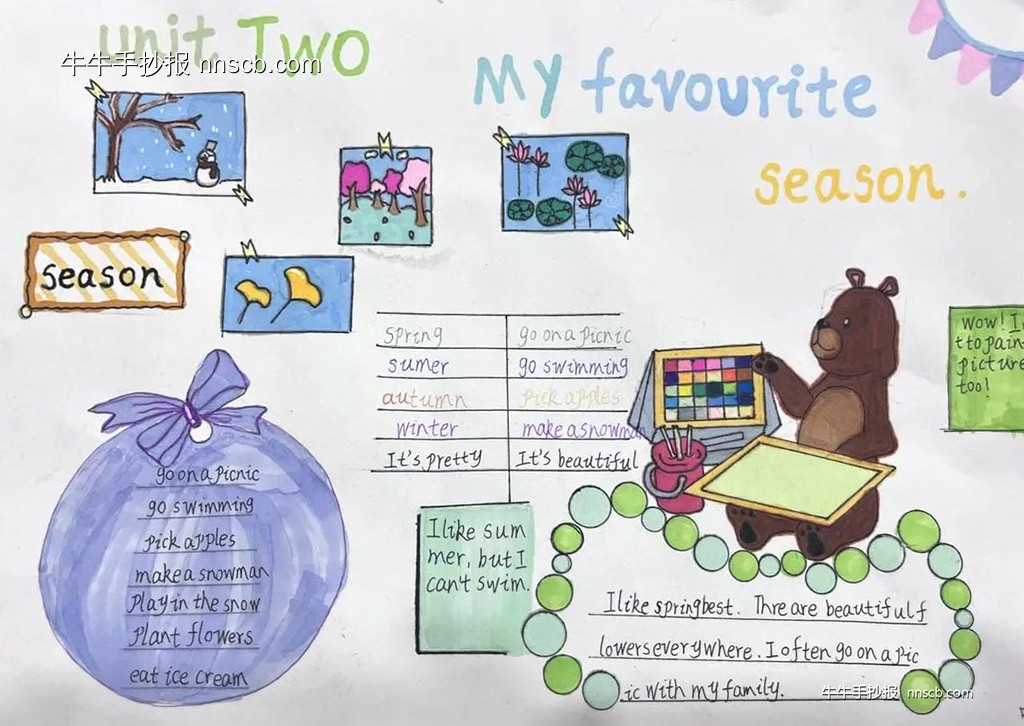 unit Two
牛牛手抄报 nnscb.com
My favourite
season.
season
spring go on a picnic
sumer go swimming
autumn pick apples
winter make a snowman
It's pretty It's beautiful
Wow! I
t to pain
picture
too!
go on a picnic
go swimming
pick apples
make a snowman
Play in the snow
Plant flowers
eat ice cream
I like sum
mer, but I
can't swim.
I like spring best. Thre are beautiful f
lowers everywhere. I often go on a pic
ic with my family.
牛牛手抄报 nnscb.com